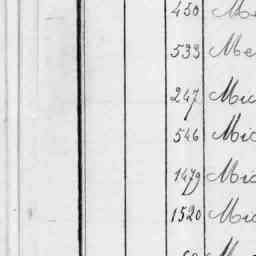 450 Me
533 Me
247 Mic
546 Mic
1479 Mic
1520 Mic